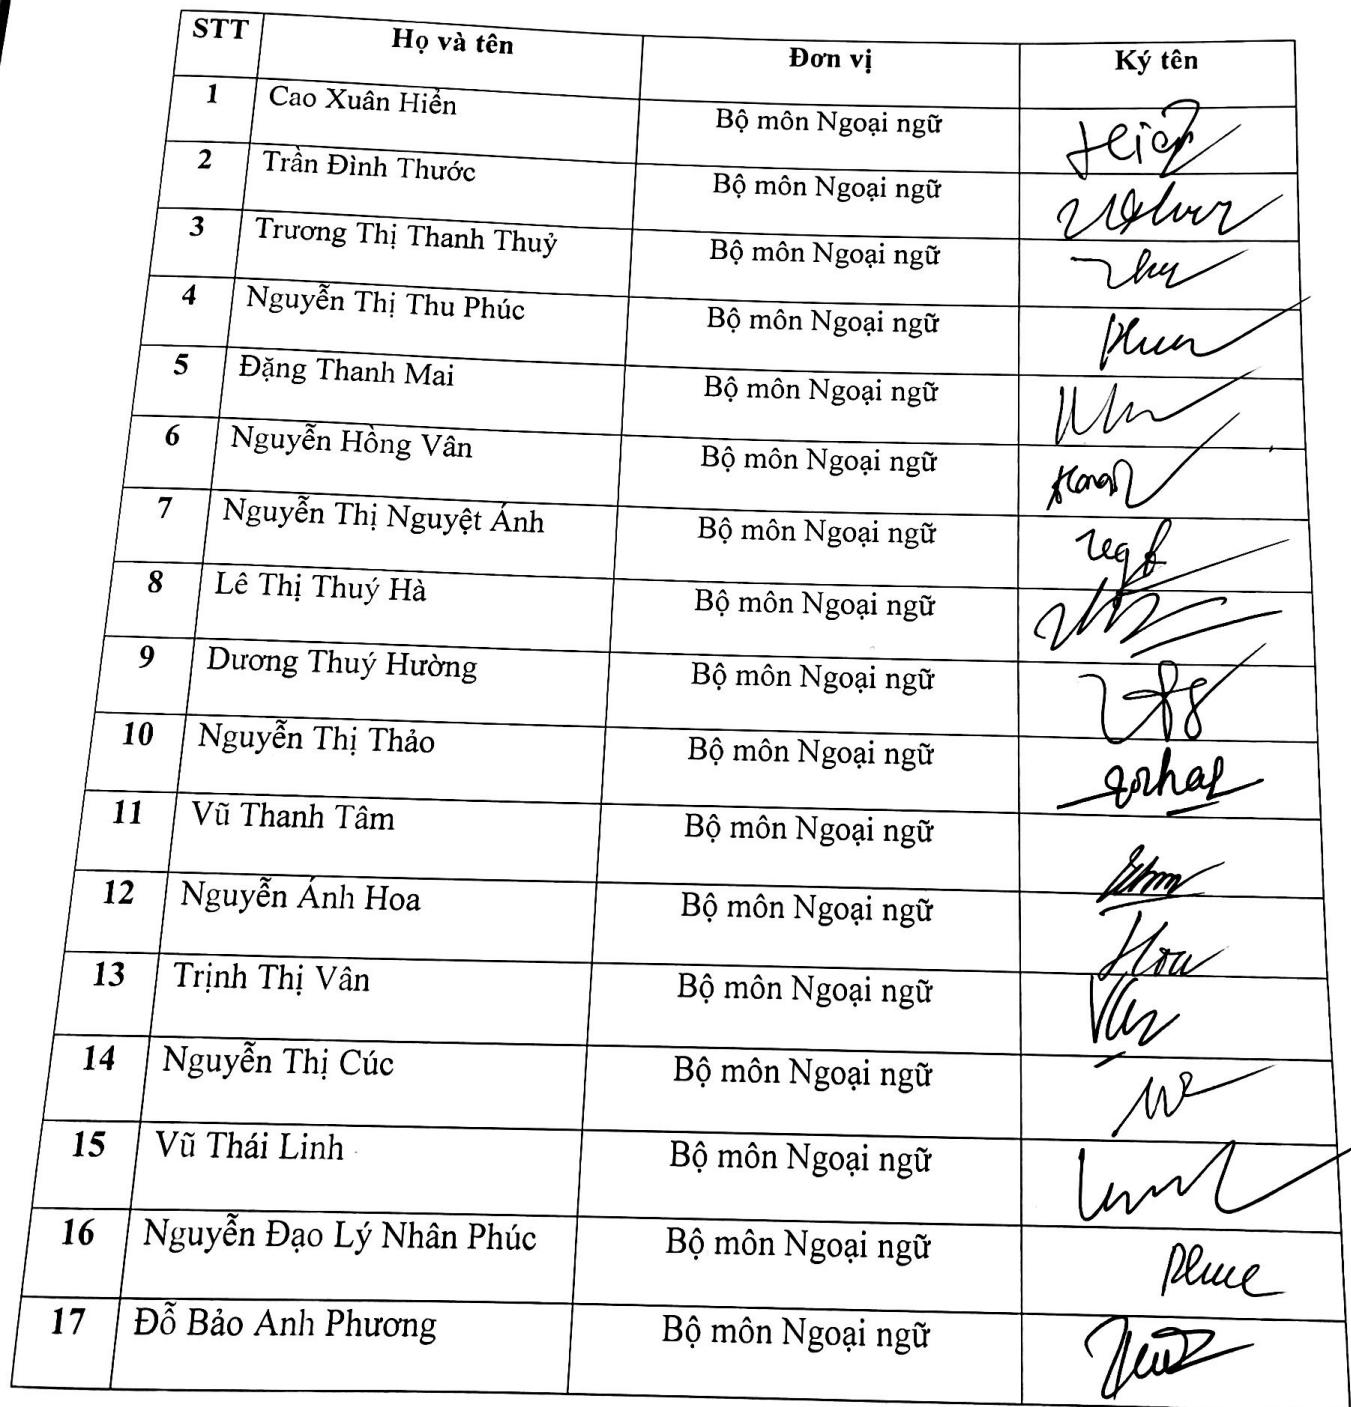 STT Họ và tên Đơn vị Ký tên
1 Cao Xuân Hiển Bộ môn Ngoại ngữ
2 Trần Đình Thước Bộ môn Ngoại ngữ
3 Trương Thị Thanh Thuỷ Bộ môn Ngoại ngữ
4 Nguyễn Thị Thu Phúc Bộ môn Ngoại ngữ
5 Đặng Thanh Mai Bộ môn Ngoại ngữ
6 Nguyễn Hồng Vân Bộ môn Ngoại ngữ
7 Nguyễn Thị Nguyệt Ánh Bộ môn Ngoại ngữ
8 Lê Thị Thuý Hà Bộ môn Ngoại ngữ
9 Dương Thuý Hường Bộ môn Ngoại ngữ
10 Nguyễn Thị Thảo Bộ môn Ngoại ngữ
11 Vũ Thanh Tâm Bộ môn Ngoại ngữ
12 Nguyễn Ánh Hoa Bộ môn Ngoại ngữ Hoa
13 Trịnh Thị Vân Bộ môn Ngoại ngữ
14 Nguyễn Thị Cúc Bộ môn Ngoại ngữ
15 Vũ Thái Linh Bộ môn Ngoại ngữ
16 Nguyễn Đạo Lý Nhân Phúc Bộ môn Ngoại ngữ
17 Đỗ Bảo Anh Phương Bộ môn Ngoại ngữ